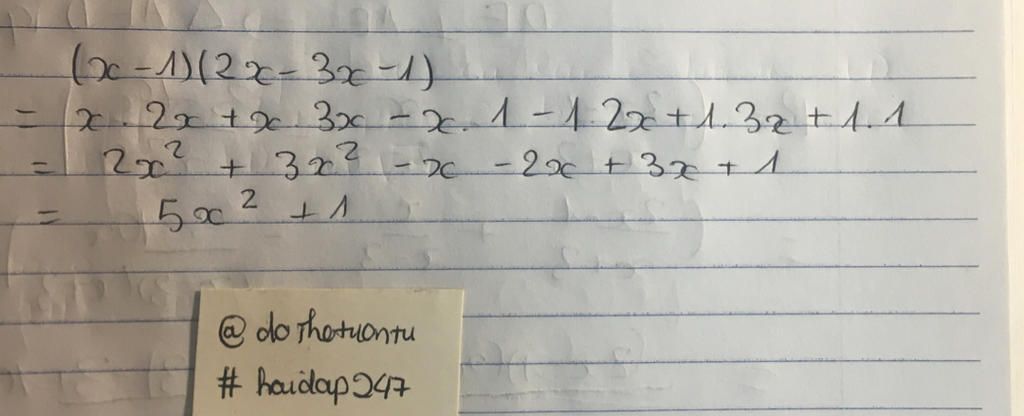 (x - 1)(2x - 3x - 1)
= x . 2x + x . 3x - x . 1 - 1 . 2x + 1 . 3x + 1 . 1
= 2x² + 3x² - x - 2x + 3x + 1
= 5x² + 1
@ dothotuontu
# hoidap247